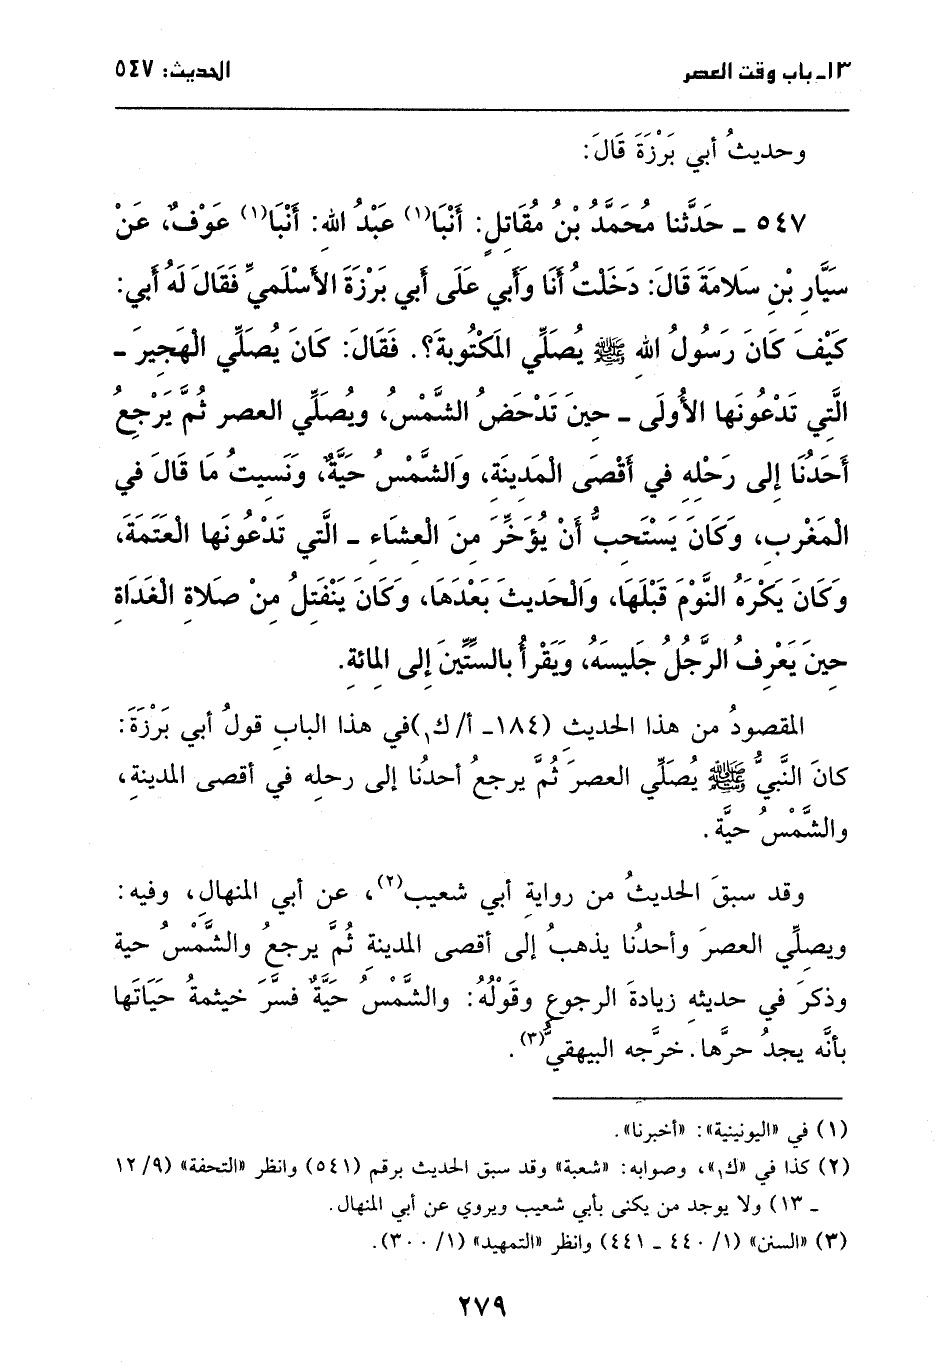 ١٣- باب وقت العصر
الحديث: ٥٤٧
وحديثُ أبي بَرْزَةَ قَالَ:
٥٤٧ - حَدَّثنا مُحَمَّدُ بْنُ مُقَاتِلٍ: أَنْبَا(١) عَبْدُ اللهِ: أَنْبَا(١) عَوْفٌ، عَنْ
سَيَّارِ بْنِ سَلَامَةَ قَالَ: دَخَلْتُ أَنَا وَأَبي عَلَى أَبي بَرْزَةَ الأَسْلَميِّ فَقَالَ لَهُ أَبي:
كَيْفَ كَانَ رَسُولُ اللهِ ﷺ يُصَلِّي المَكْتُوبةَ؟. فَقَالَ: كَانَ يُصَلِّي الْهَجِيرَ -
الَّتي تَدْعُونَها الأُولَى - حِينَ تَدْحَضُ الشَّمْسُ، ويُصَلِّي العصر ثُمَّ يَرْجِعُ
أَحَدُنَا إلى رَحْلِهِ في أَقْصَى الْمَدِينَةِ، وَالشَّمْسُ حَيَّةٌ، وَنَسِيتُ مَا قَالَ في
الْمَغْرِبِ، وَكَانَ يَسْتَحِبُّ أَنْ يُؤَخِّرَ مِنَ الْعِشَاءِ - الَّتي تَدْعُونَها الْعَتَمَةَ،
وَكَانَ يَكْرَهُ النَّوْمَ قَبْلَهَا، وَالْحَدِيثَ بَعْدَهَا، وَكَانَ يَنْفَتِلُ مِنْ صَلاةِ الْغَدَاةِ
حِينَ يَعْرِفُ الرَّجُلُ جَلِيسَهُ، وَيَقْرأُ بالسِّتِّينَ إلى المِائَةِ.
المقصودُ من هذا الحديثِ (١٨٤- أ/ك١)في هذا البابِ قولُ أبي بَرْزَةَ:
كانَ النَّبيُّ ﷺ يُصَلِّي العصرَ ثُمَّ يرجعُ أحدُنا إلى رحلِه في أقصى المدينةِ،
والشَّمْسُ حيَّة.
وقد سبقَ الحديثُ من روايةِ أبي شعيب(٢)، عن أبي المنهالِ، وفيه:
ويصلِّي العصرَ وأحدُنا يذهبُ إلى أقصى المدينةِ ثُمَّ يرجعُ والشَّمْسُ حية
وذكرَ في حديثِه زيادةَ الرجوعِ وقَوْلُهُ: والشَّمْسُ حَيَّةٌ فسَّرَ خيثمةُ حَيَاتَها
بأنَّه يجدُ حرَّها. خرَّجه البيهقيُّ(٣).
(١) في «اليونينية»: «أخبرنا».
(٢) كذا في «ك١»، وصوابه: «شعبة» وقد سبق الحديث برقم (٥٤١) وانظر «التحفة» (٩/ ١٢
- ١٣) ولا يوجد من يكنى بأبي شعيب ويروي عن أبي المنهال.
(٣) «السنن» (١/ ٤٤٠ - ٤٤١) وانظر «التمهيد» (١/ ٣٠٠).
٢٧٩